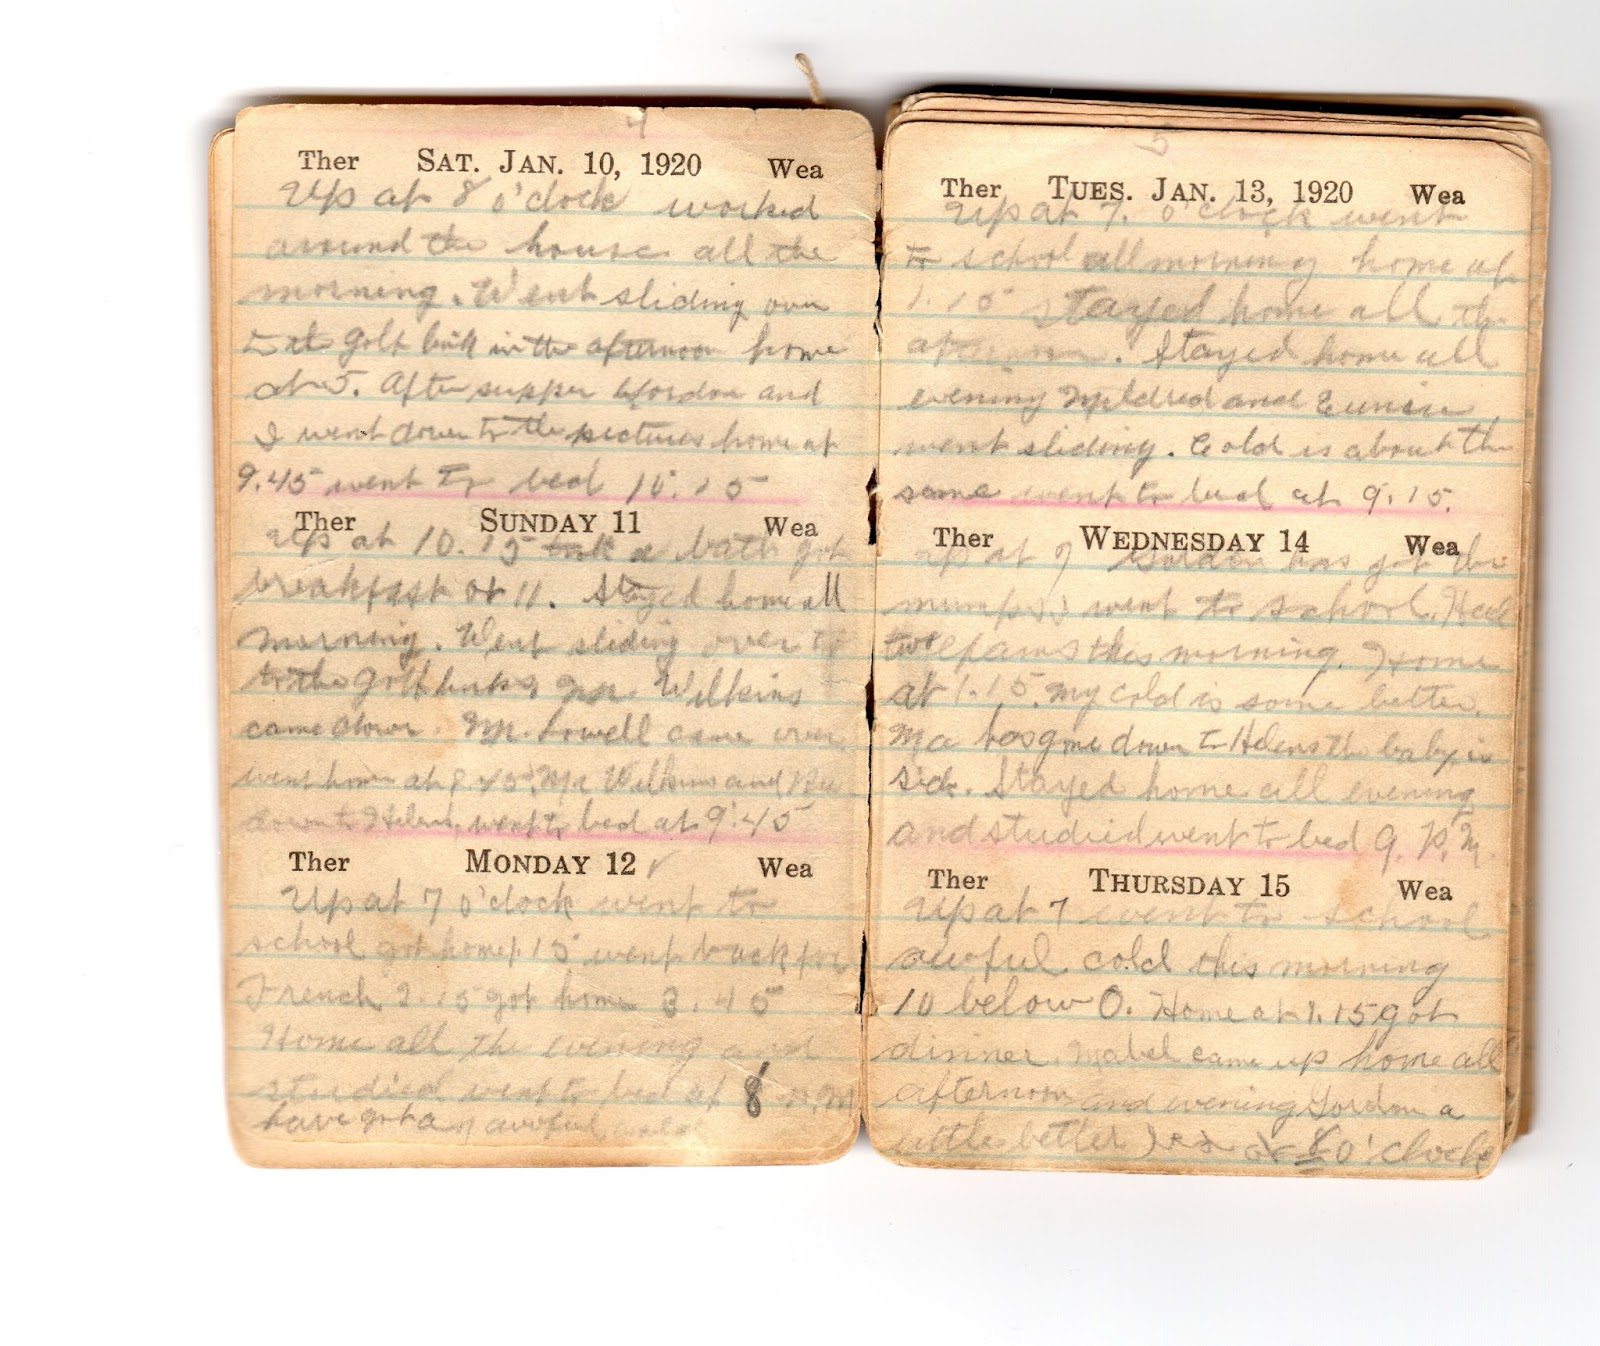 4
Ther SAT. JAN. 10, 1920 Wea
Up at 8 o'clock worked
around the house all the
morning. Went sliding over
to the golf link in the afternoon home
at 5. After supper Gordon and
I went down to the pictures home at
9.45 went to bed 10.15
Ther SUNDAY 11 Wea
Up at 10.15 took a bath got
breakfast at 11. Stayed home all
morning. Went sliding over to
to the golf links Mr Wilkins
came down. Mr. Lowell came over
went home at 8.45. Mr Wilkins and
down to Helens, went to bed at 9.45
Ther MONDAY 12 Wea
Up at 7 o'clock went to
school got home 1.15 went back for
French 2.15 got home 3.45
Home all the evening and
studied went to bed at 8 P.M
have got a awful
5
Ther TUES. JAN. 13, 1920 Wea
Up at 7. o'clock went
to school all morning home at
1.15 stayed home all the
afternoon. Stayed home all
evening Mildred and Eunice
went sliding. Cold is about the
same went to bed at 9.15.
Ther WEDNESDAY 14 Wea
Up at 7 Gordon has got the
mumps went to school. Had
two exams this morning. Home
at 1.15. My cold is some better.
Ma has gone down to Helens the baby is
sick. Stayed home all evening
and studied went to bed 9. P.M.
Ther THURSDAY 15 Wea
Up at 7 went to school
awful cold this morning
10 below 0. Home at 1.15 got
dinner. Mabel came up home all
afternoon and evening Gordon a
little better 8 o'clock